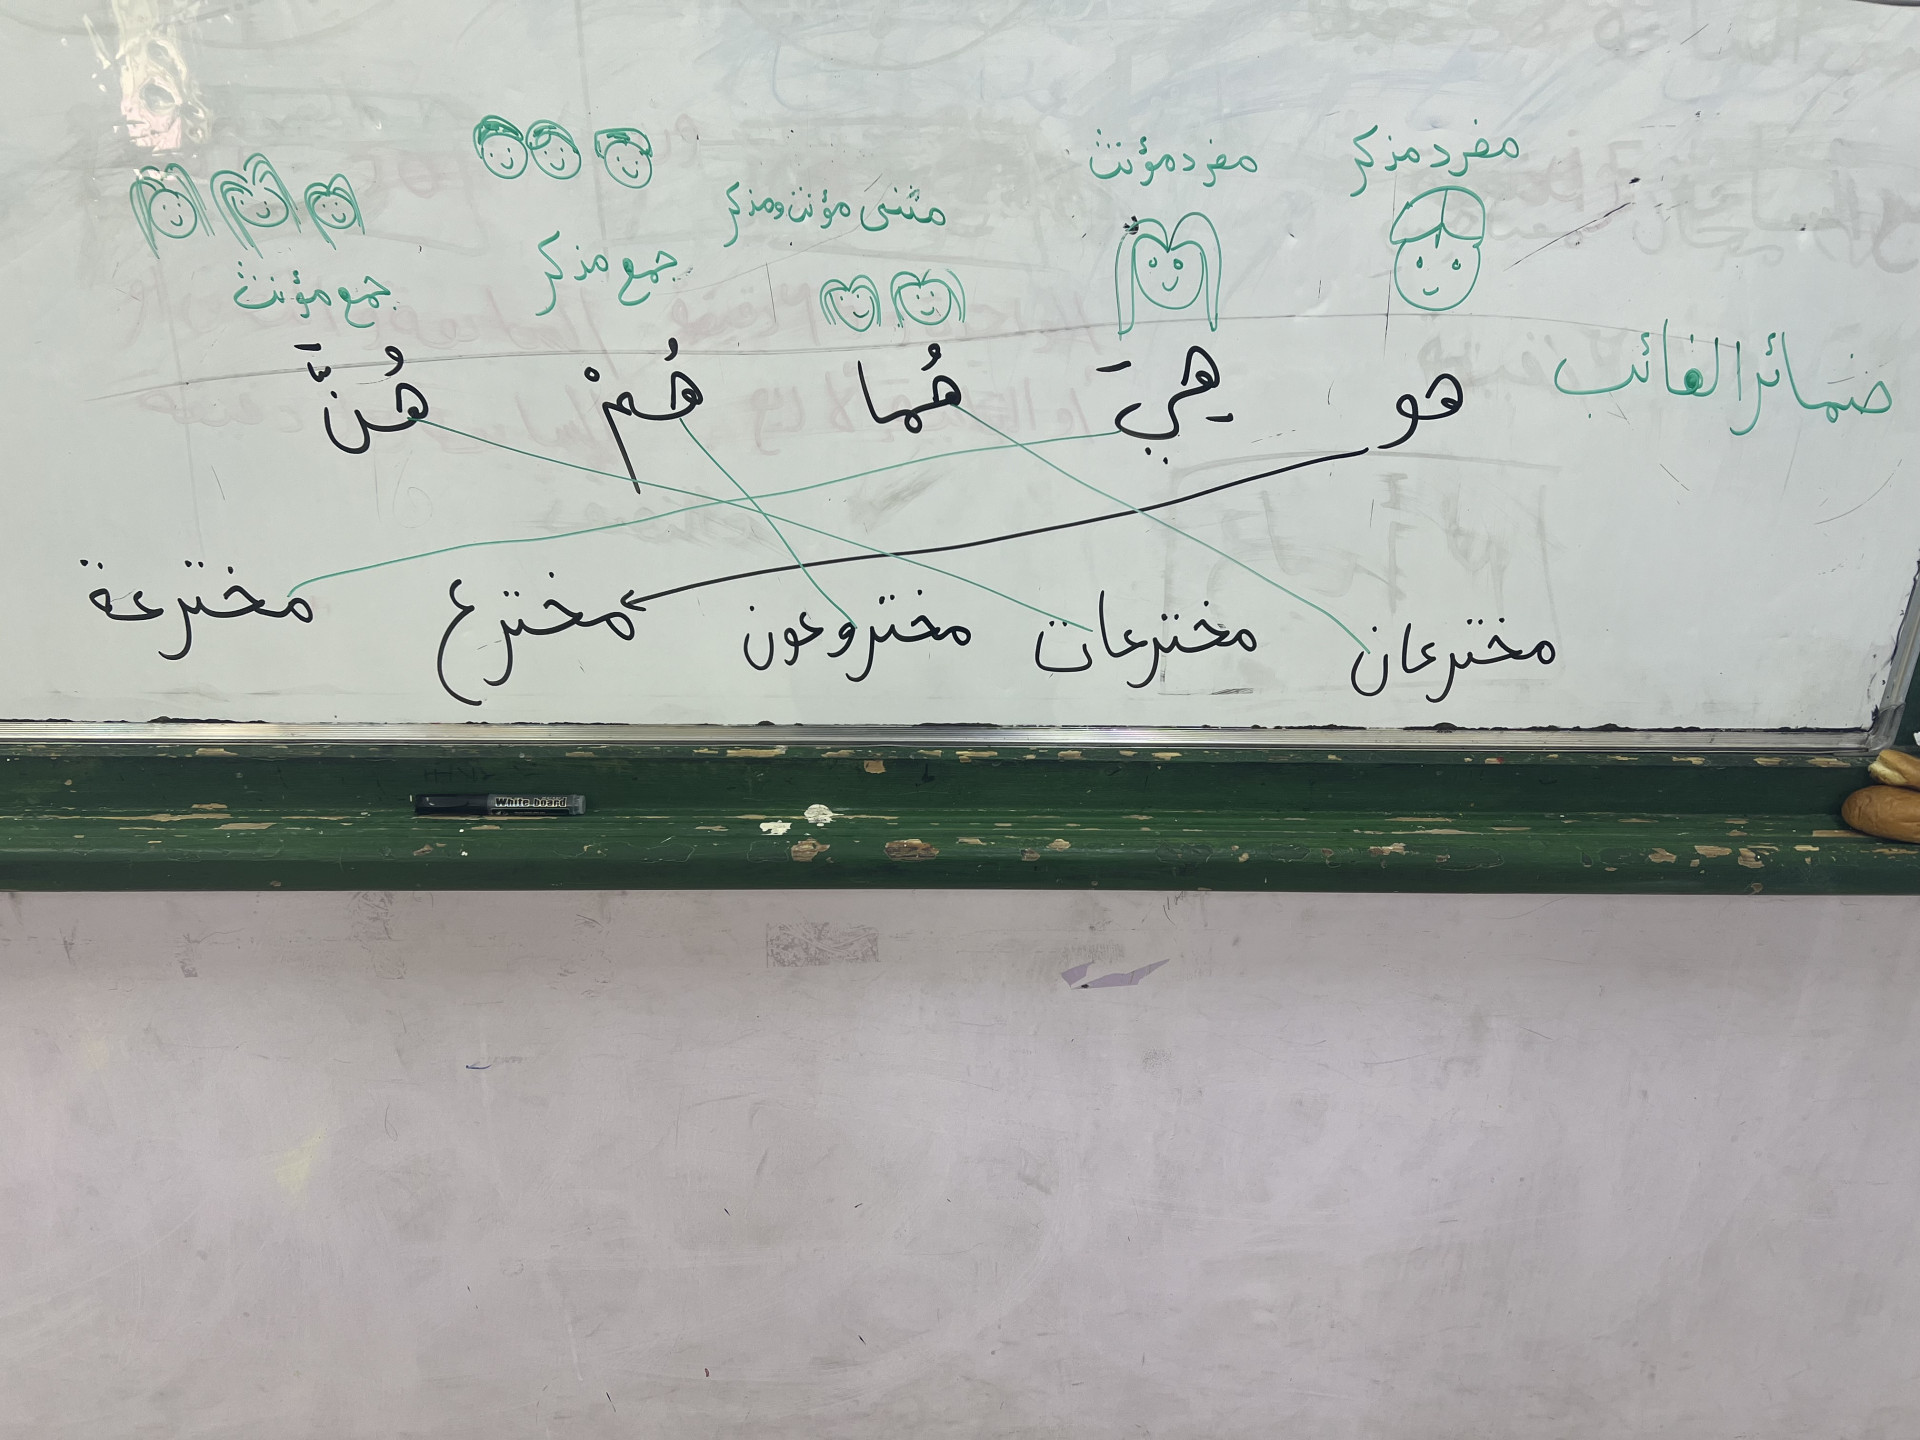 مفرد مذكر
مفرد مؤنث
مثنى مؤنث ومذكر
جمع مذكر
جمع مؤنث
ضمائر الغائب
هو هِيَ هُما هُمْ هُنَّ
مخترعان مخترعات مختروعون مخترع مخترعة
White board